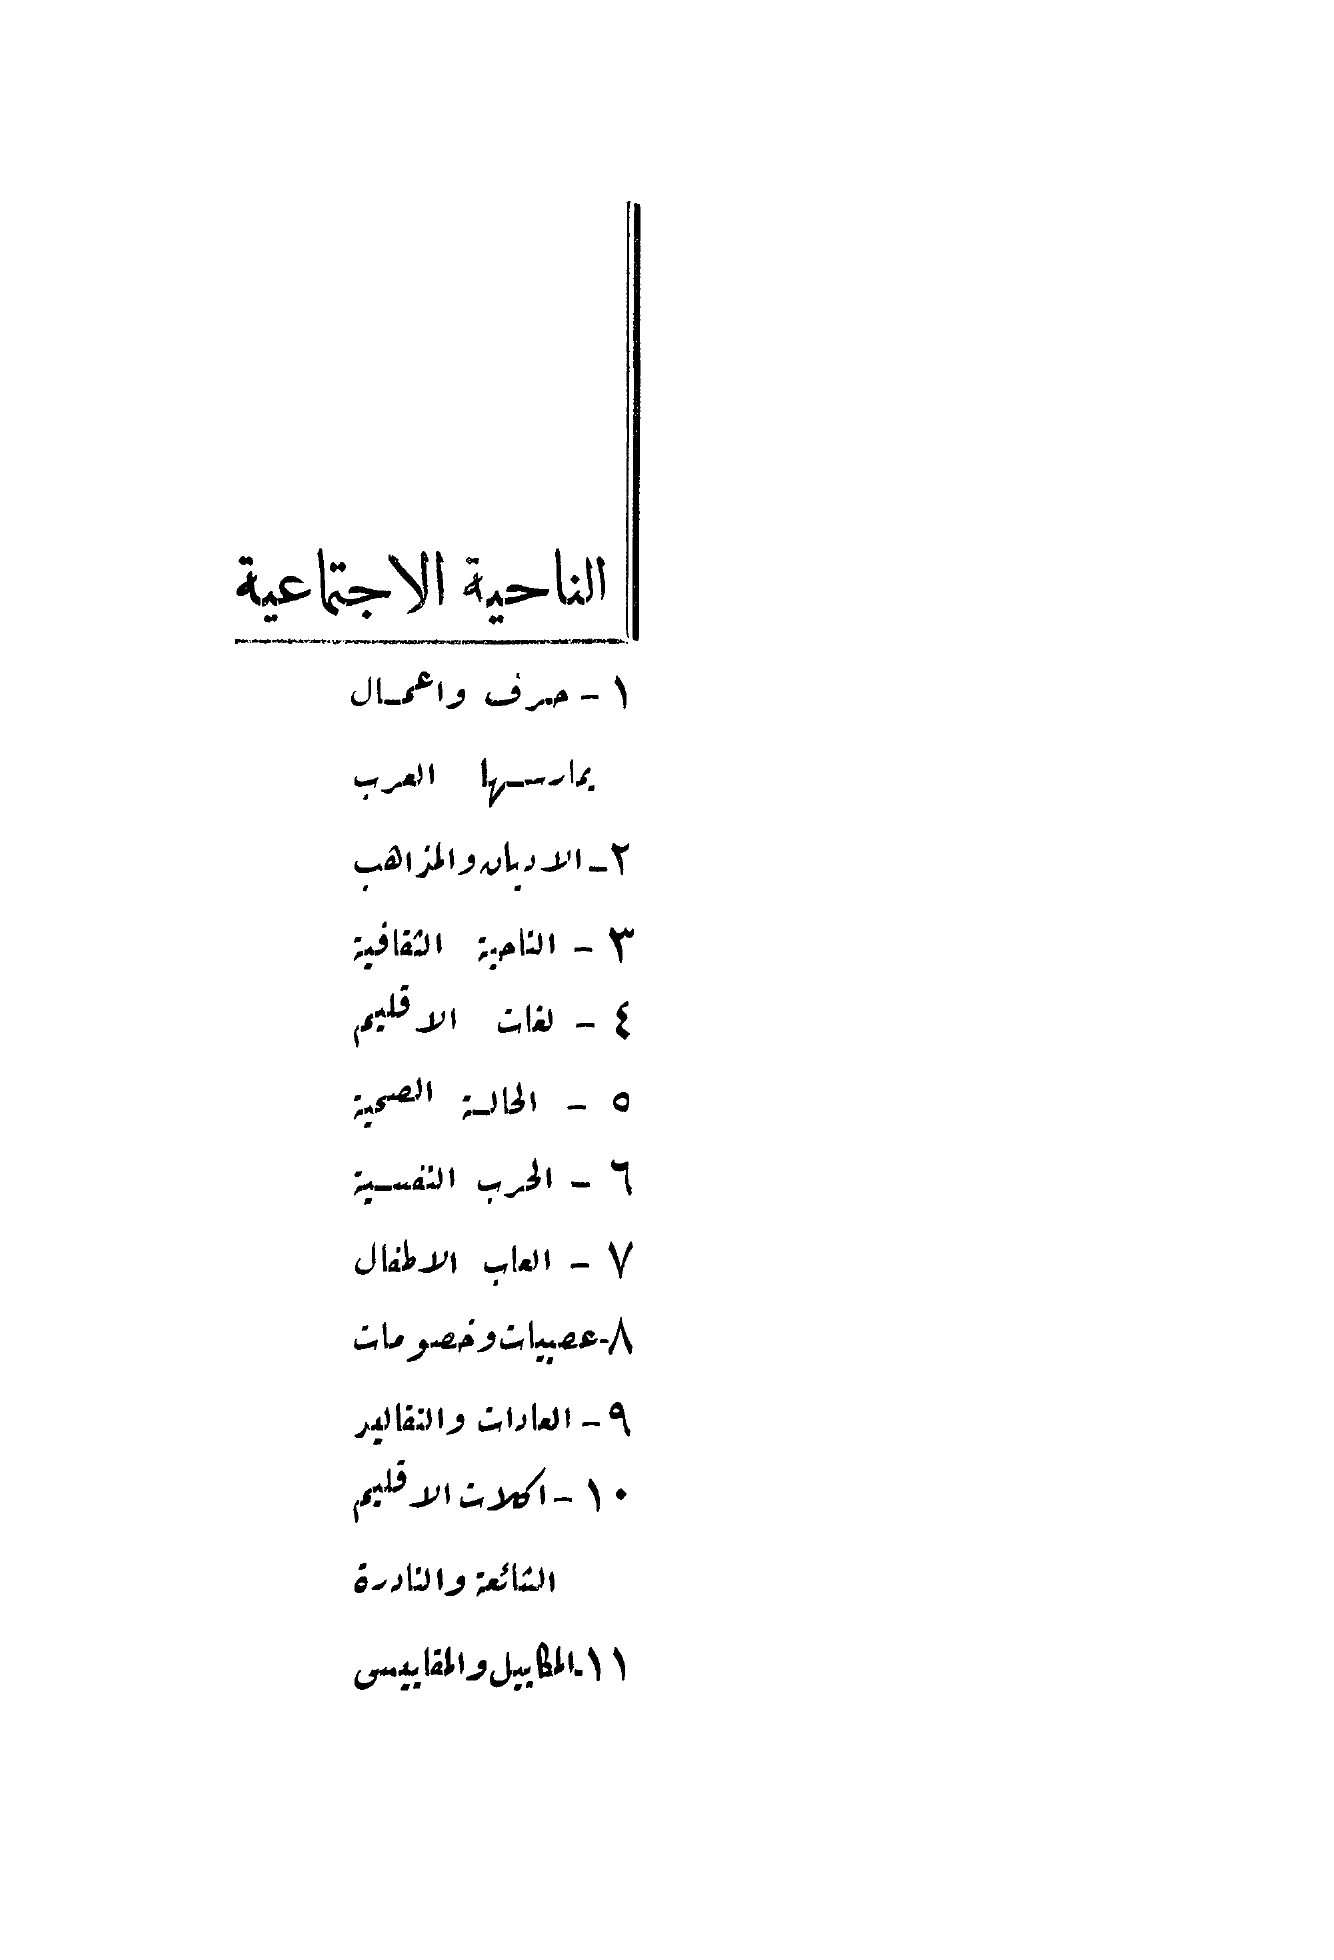 الناحية الاجتماعية
١ - حرف واعمال
يمارسها العرب
٢ - الاديان والمذاهب
٣ - الناحية الثقافية
٤ - لغات الاقليم
٥ - الحالة الصحية
٦ - الحرب النفسية
٧ - العاب الاطفال
٨ - عصبيات وخصومات
٩ - العادات والتقاليد
١٠ - اكلات الاقليم
الشائعة والنادرة
١١ - المكاييل والمقاييس